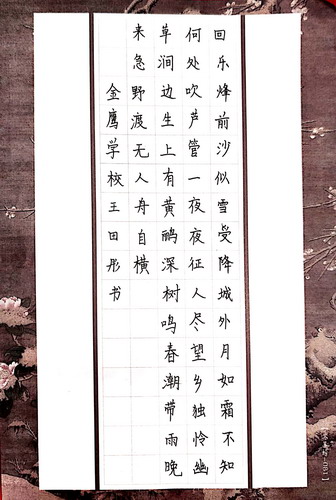 回乐烽前沙似雪受降城外月如霜不知
何处吹芦管一夜夜征人尽望乡独怜幽
草涧边生上有黄鹂深树鸣春潮带雨晚
来急野渡无人舟自横
金鹰学校王田彤书